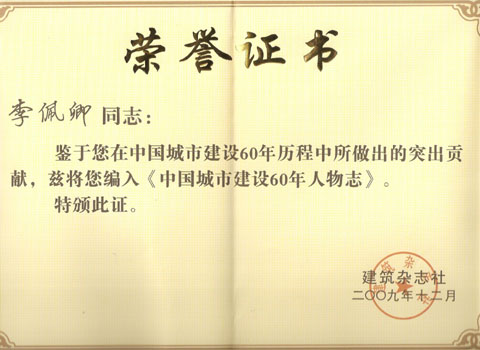 荣誉证书
李佩卿 同志：
鉴于您在中国城市建设60年历程中所做出的突出贡
献，兹将您编入《中国城市建设60年人物志》。
特颁此证。
建筑杂志社
二〇〇九年十二月